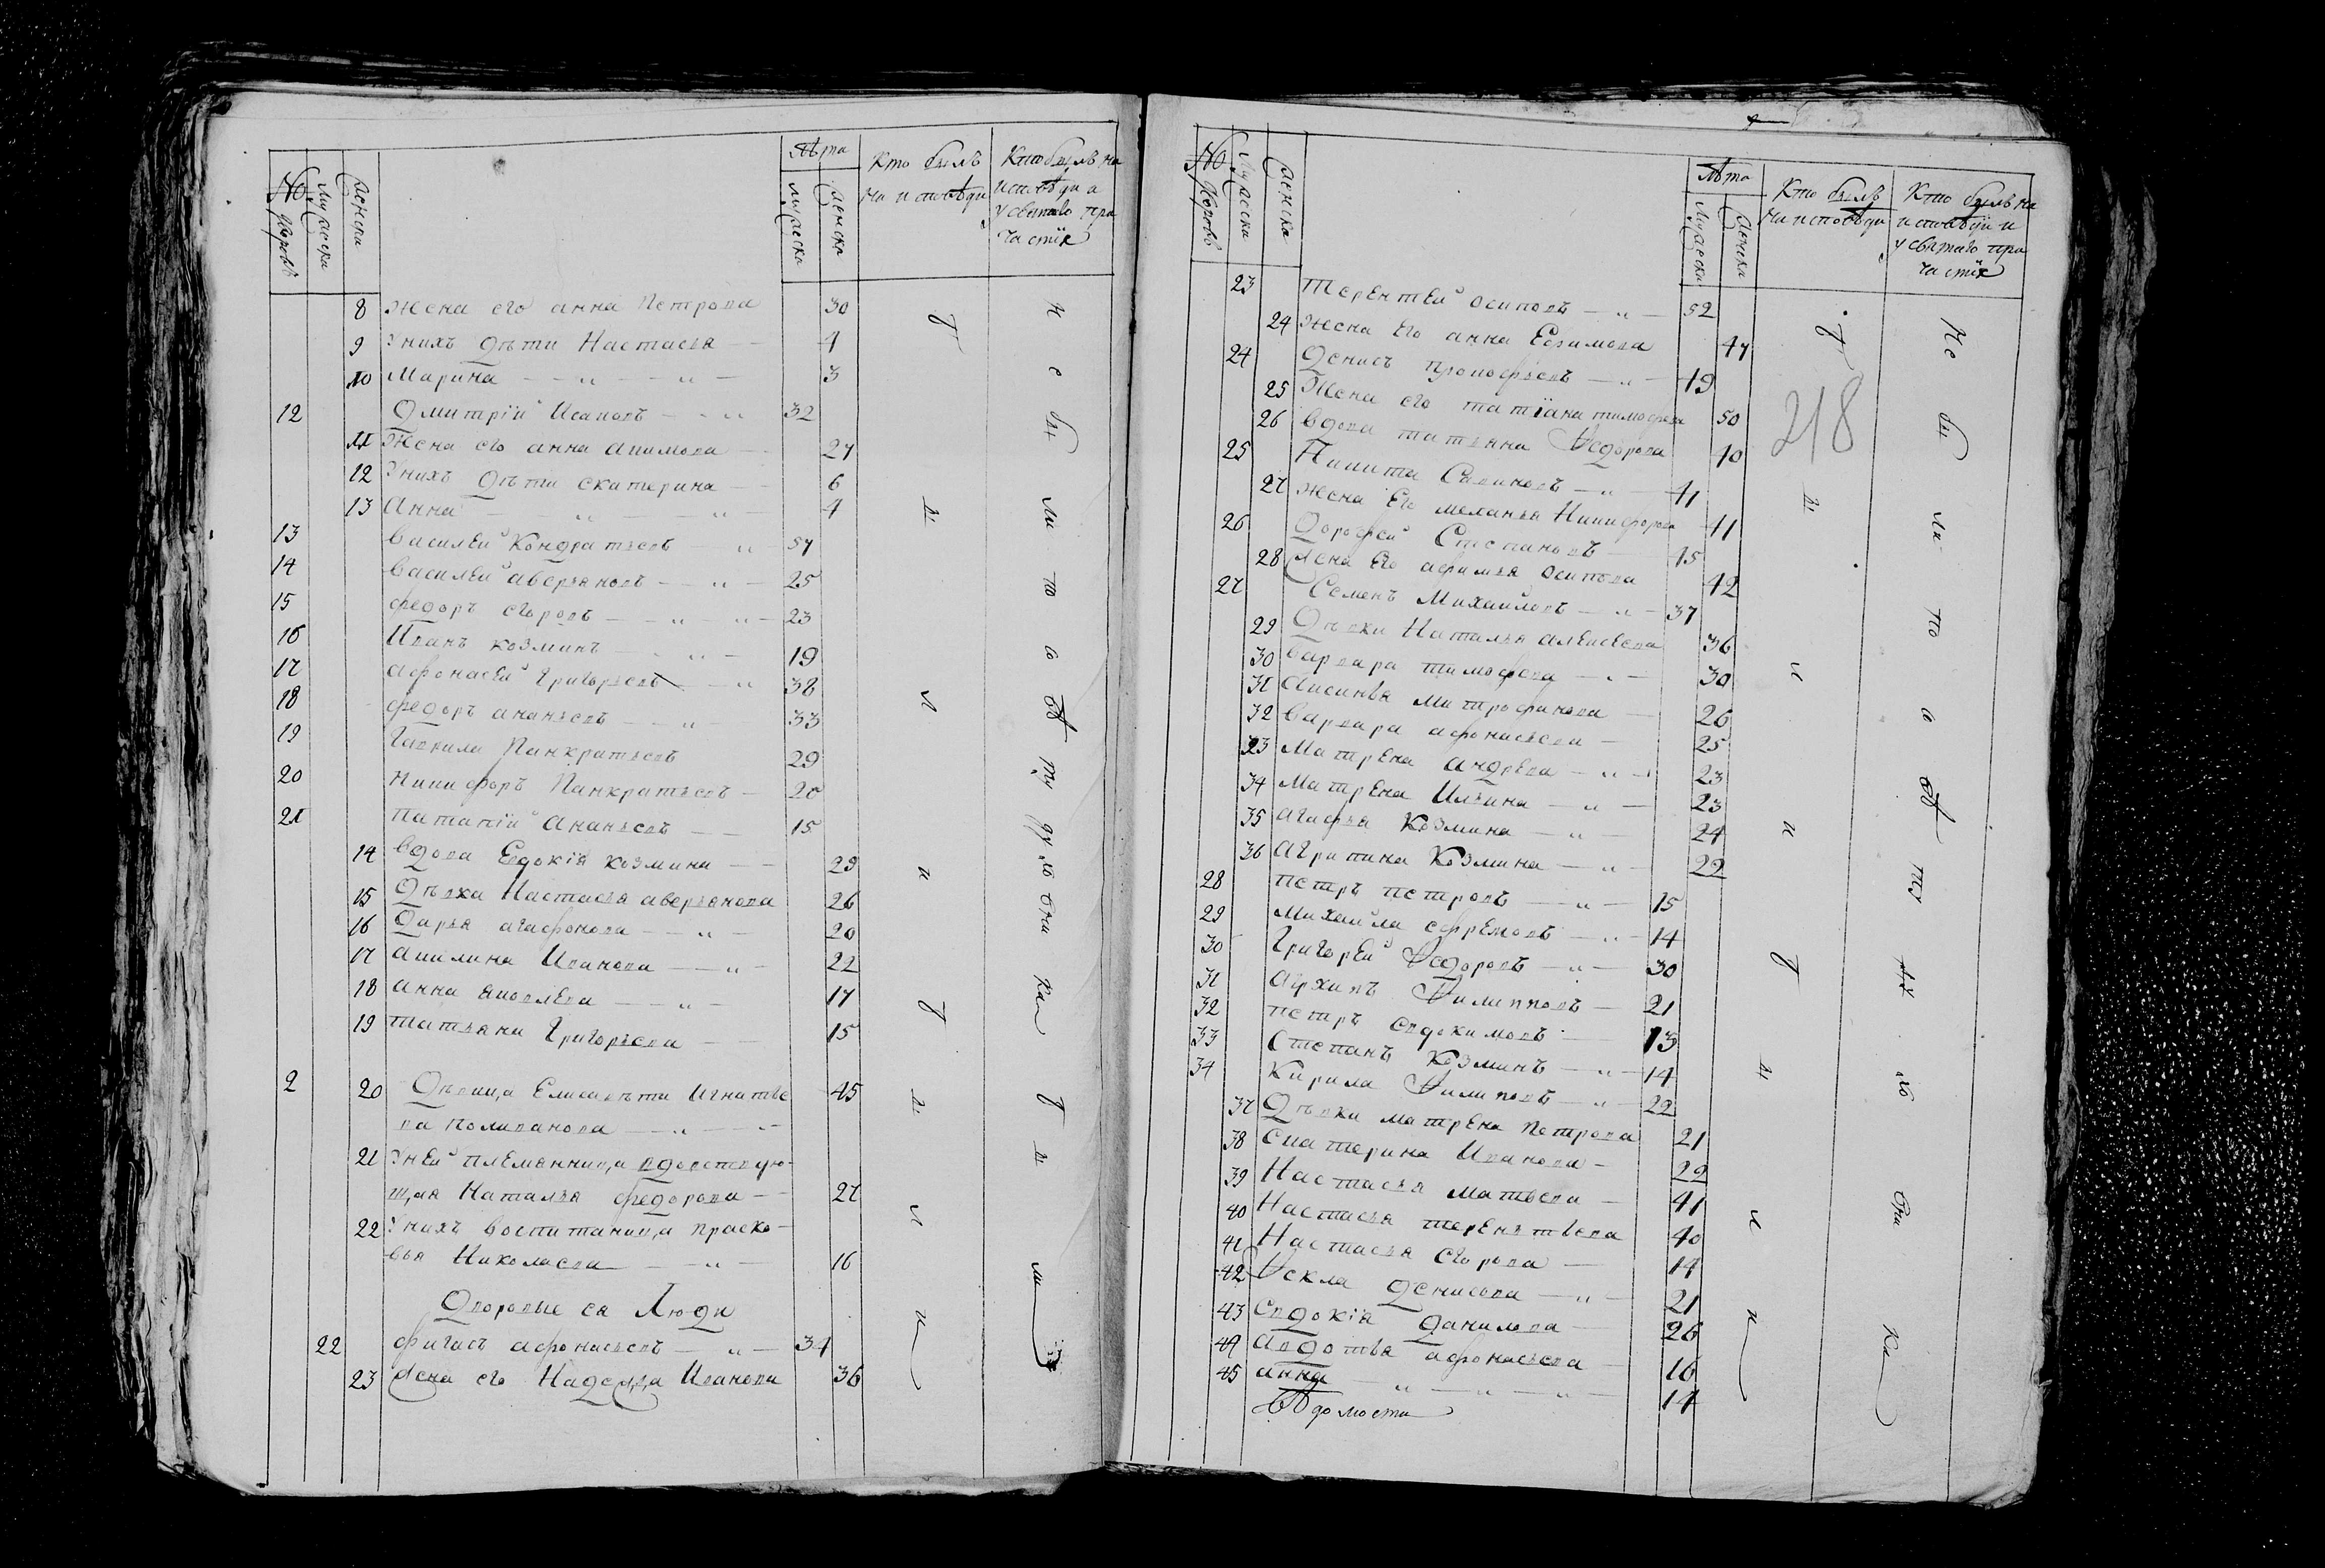 No дворовъ
Мужеска
Женска
Лѣта
Мужеска
Женска
Кто былъ
на исповѣди
Кто былъ на
исповѣди и
у святаго при
частїя
8 Жена его анна Петрова 30
9 Унихъ дѣти Настасья 4
10 Марина — „ — „ — 3
12 Дмитрїй Исаковъ — „ 32
11 Жена его анна акимова 27
12 Унихъ дѣти екатерина 6
13 Анна — „ — „ — 4
13 Василей Кондратьевъ — „ 57
14 Василей аверьяновъ — „ — 25
15 федоръ егоровъ — „ — „ — 23
16 Иванъ козминъ — „ — 19
17 афонасей Григорьевъ — „ 38
18 федоръ ананьевъ — „ 33
19 Гаврила Панкратьевъ 29
20 Никифоръ Панкратьевъ — 20
21 Патапїй Ананьевъ — 15
14 вдова Едокїя козмина — 29
15 Дѣвка Настасья аверьянова 26
16 Дарья агафонова — „ — 20
17 акилина Иванова — „ — 22
18 анна яковлева — „ — 17
19 татьяна Григорьева — 15
2 20 Дѣвица Елисаветта Игнатье 45
ва поливанова — „ —
21 Уней племянница вдовствую-
щая Наталья федорова — 27
22 Унихъ воспитаница праско-
вья Николаева — „ — 16
Дворовые ея Люди
22 фигасъ афонасьевъ — „ — 34
23 Жена его Надежда Иванова 36
No дворовъ
Мужеска
Женска
Лѣта
Мужеска
Женска
Кто былъ
на исповѣди
Кто былъ на
исповѣди и
у святаго при
частїя
218
23 Терентей осиповъ — „ — 52
24 Жена Его анна Ефимова 47
24 Денисъ прокофьевъ — „ — 19
25 Жена его татїана тимофеева 50
26 вдова татьяна Федорова 40
25 Никита — „ — 41
27 жена Его меланья Никифорова 41
26 Дорофей Степановъ 45
28 Жена Его афимья осипова 42
27 Семенъ Михайловъ — „ — 37
29 Дѣвки Наталья алексеева 36
30 варвара тимофеева — „ — 30
31 аксинья митрофанова — 26
32 варвара афонасьева — 25
33 Матрена андреева — „ — 23
34 Матрена Ильина — „ — 23
35 агафья Козмина — „ — 24
36 агрипина Козмина — „ — 22
28 петръ петровъ — „ — 15
29 Михайла ефремовъ — „ — 14
30 Григорей Федоровъ — „ — 30
31 архипъ Филипповъ — 21
32 петръ евдокимовъ — 13
33 Степанъ Козминъ — „ — 14
34 Кирила Филиповъ — „ — 22
37 Дѣвки матрена петрова 21
38 екатерина Иванова — 22
39 Настасья матвеева — 41
40 Настасья терентьева 40
41 Настасья егорова — 14
42 Фекла денисова — „ — 21
43 евдокїя данилова — 26
44 авдотья афонасьева — 16
45 анна — „ — „ — „ — 14
вѣдомости